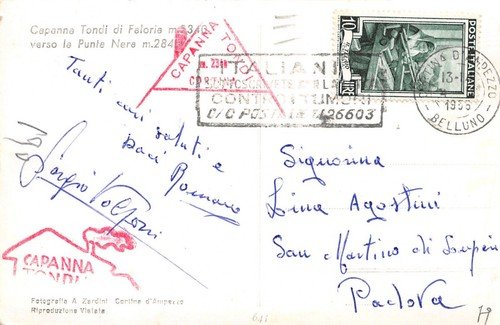 Capanna Tondi di Faloria m.2343
verso le Punte Nere m.284
CAPANNA TONDI
m. 23
CORTINA
ITALIANI
CONTRO I TUMORI
C/C POSTALE N.26603
10
LIRE
POSTE ITALIANE
CORTINA D'AMPEZZO
BELLUNO
Tanti cari saluti e
baci Romano
Sergio Volponi
Signorina
Lina Agostini
San Martino di Lupari
Padova
CAPANNA
TONDI
Fotografia A. Zardini Cortina d'Ampezzo
Riproduzione Vietata
641
79